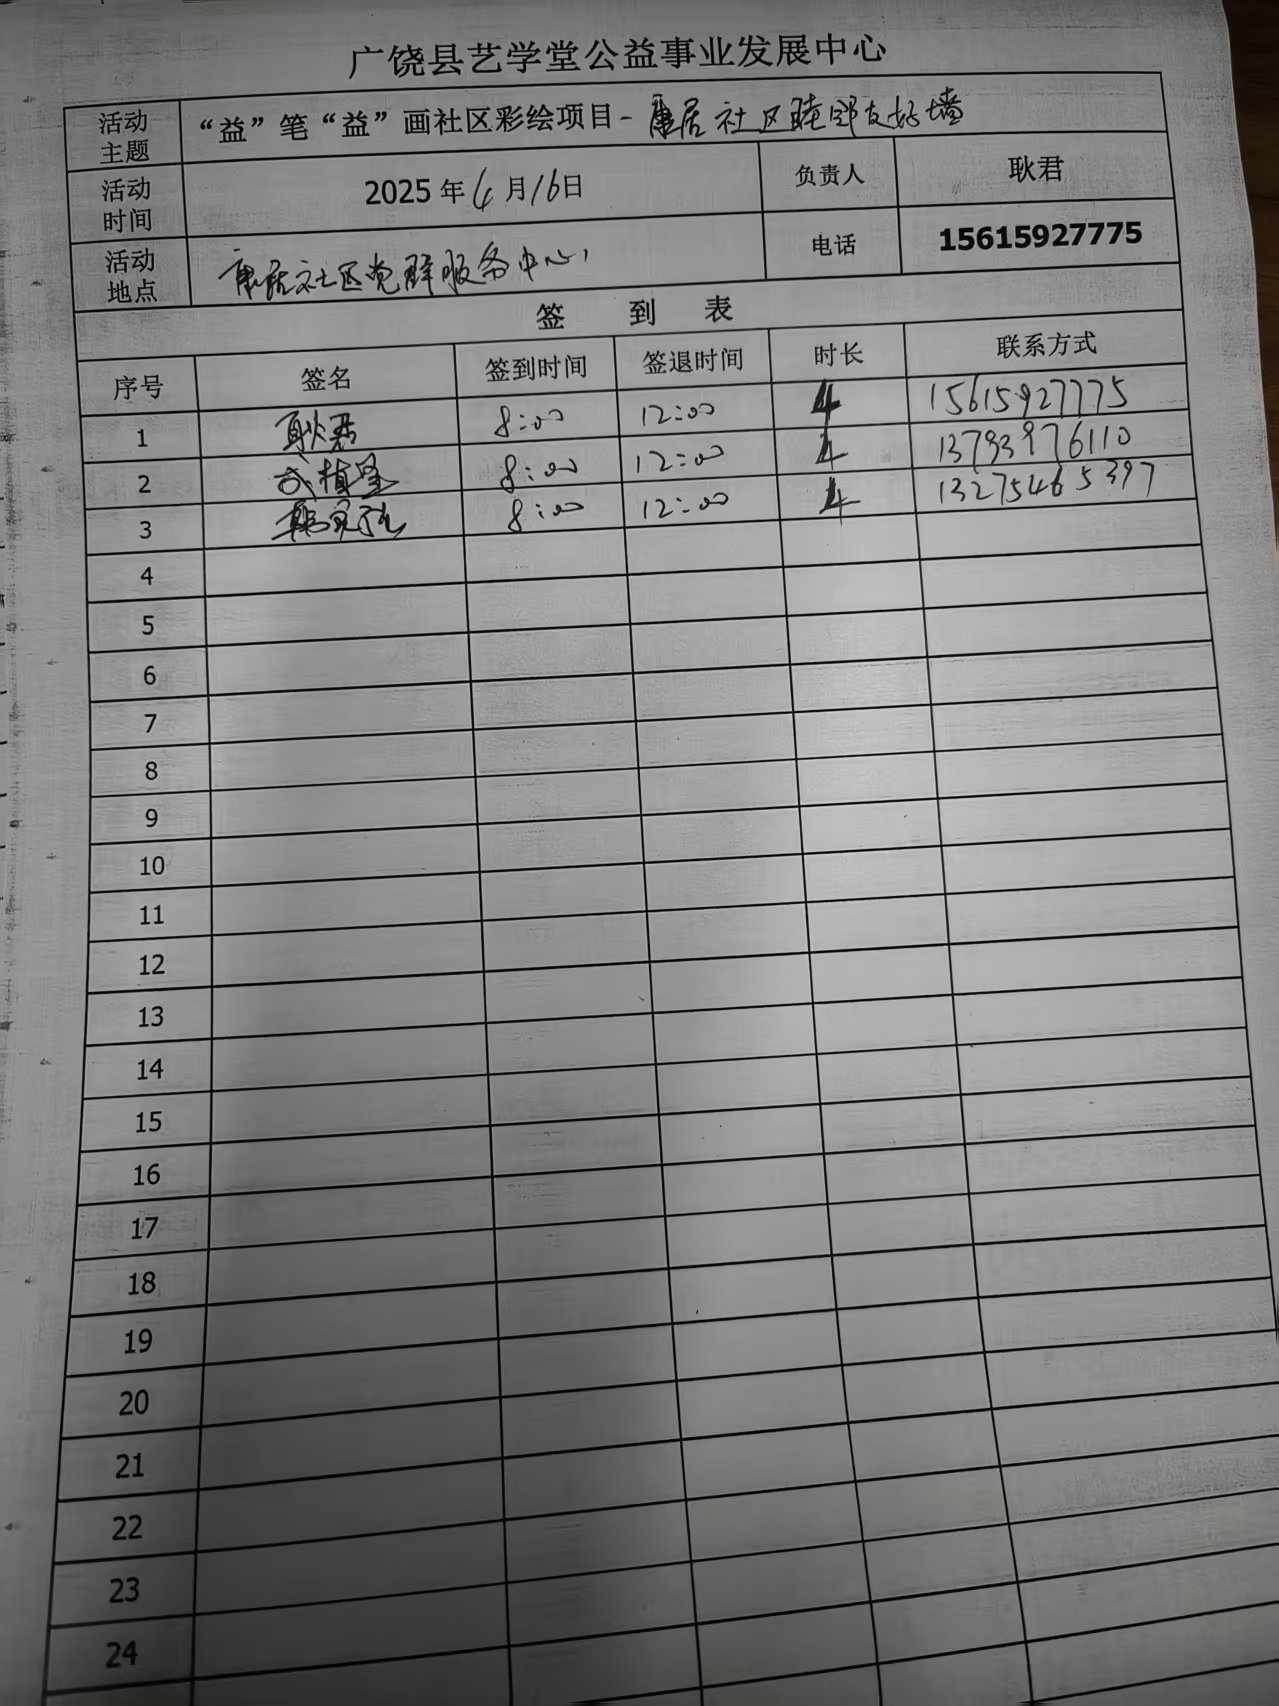 广饶县艺学堂公益事业发展中心
活动主题 “益”笔“益”画社区彩绘项目-康居社区睦邻友好墙
活动时间 2025年4月16日 负责人 耿君
活动地点 康居社区党群服务中心 电话 15615927775
签 到 表
序号 签名 签到时间 签退时间 时长 联系方式
1 耿君 8:00 12:00 4 15615927775
2 8:00 12:00 4 13793976110
3 8:00 12:00 4 13275465397
4
5
6
7
8
9
10
11
12
13
14
15
16
17
18
19
20
21
22
23
24